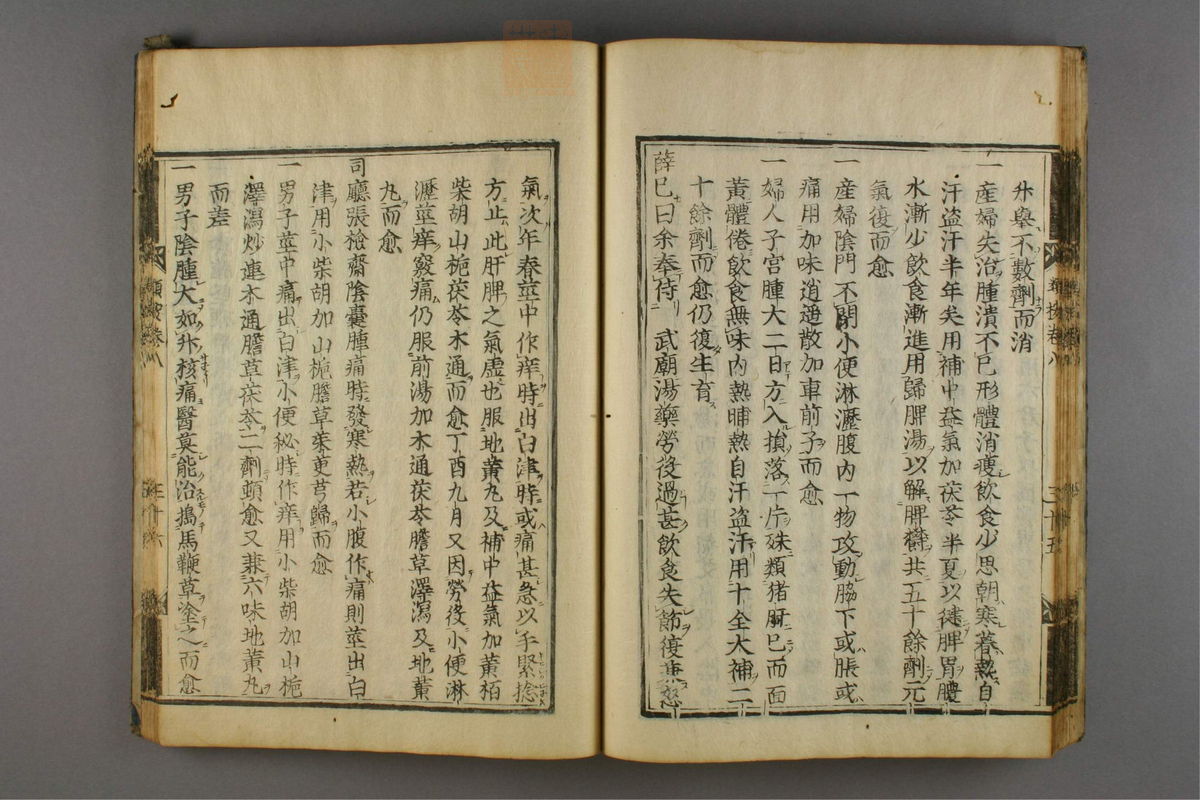 升擧不數劑而消
一産婦失治腫潰不已形體消瘦飲食少思朝寒暮熱自
汗盜汗半年矣用補中益氣加茯苓半夏以健脾胃膿
水漸少飲食漸進用歸脾湯以解脾欝共五十餘劑元
氣復而愈
一産婦陰門不閉小便淋瀝腹内一物攻動脇下或脹或
痛用加味逍遙散加車前子而愈
一婦人子宮腫大二日方入損落一片殊類猪肝已而面
黃體倦飲食無味内熱晡熱自汗盜汗用十全大補二
十餘劑而愈仍復生育
薛已曰余奉侍　武廟湯藥勞役過甚飲食失節復兼怒
二十五
氣次年春莖中作痒時出白津時或痛甚急以手緊捻
方止此肝脾之氣虛也服地黃丸及補中益氣加黃栢
柴胡山梔茯苓木通而愈丁酉九月又因勞役小便淋
瀝莖痒竅痛仍服前湯加木通茯苓膽草澤瀉及地黃
丸而愈
司廳張檢齋陰囊腫痛時發寒熱若小腹作痛則莖出白
津用小柴胡加山梔膽草茱萸芎歸而愈
一男子莖中痛出白津小便秘時作痒用小柴胡加山梔
澤瀉炒連木通膽草茯苓二劑頓愈又兼六味地黃丸
而差
一男子陰腫大如升核痛醫莫能治搗馬鞭草塗之而愈